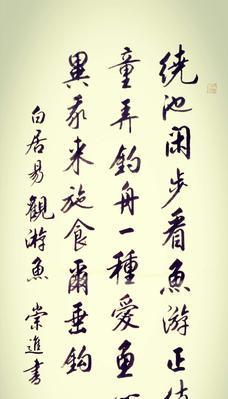 繞池闲步看魚游正值
童弄钓舟一種愛魚
異我来施食爾垂鈎
白居易觀游魚 崇進書